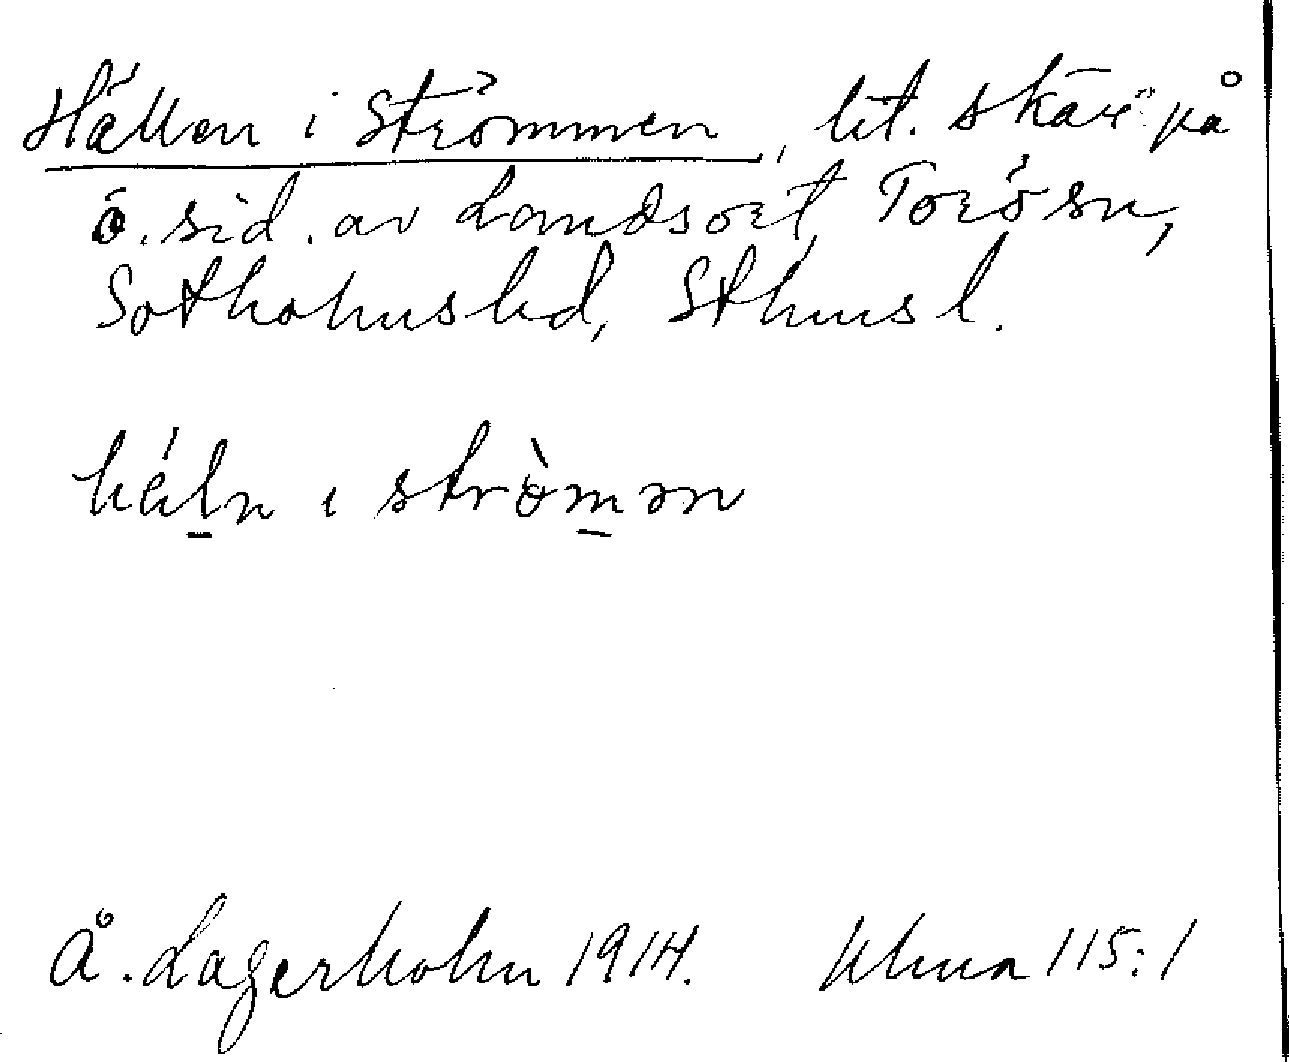 Hällen i Strömmen, lit. skär på
ö. sid. av Landsort, Torö sn,
Sotholms hd, Sthms l.
hä́l̠n i strò̈m̠ən
Å. Lagerholm 1914. Ulma 115:1